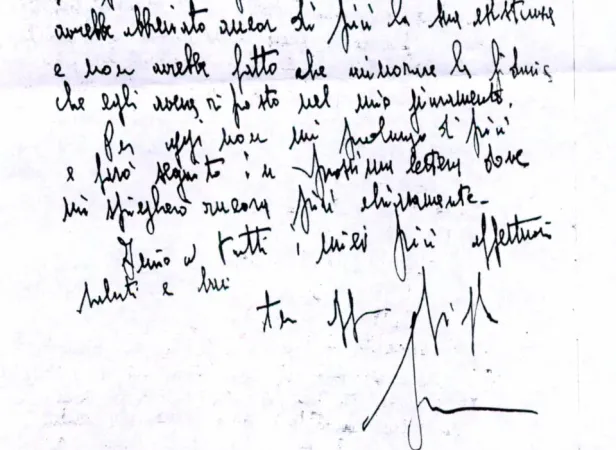 avrebbe abbreviato ancor di più la sua esistenza
e non avrebbe fatto che minorare la fiducia
che egli aveva riposto nel mio giuramento.
Per oggi non mi prolungo di più
e farò seguito in prossima lettera dove
mi spiegherò ancora più chiaramente.
Invio a tutti i miei più affettuosi
saluti e baci